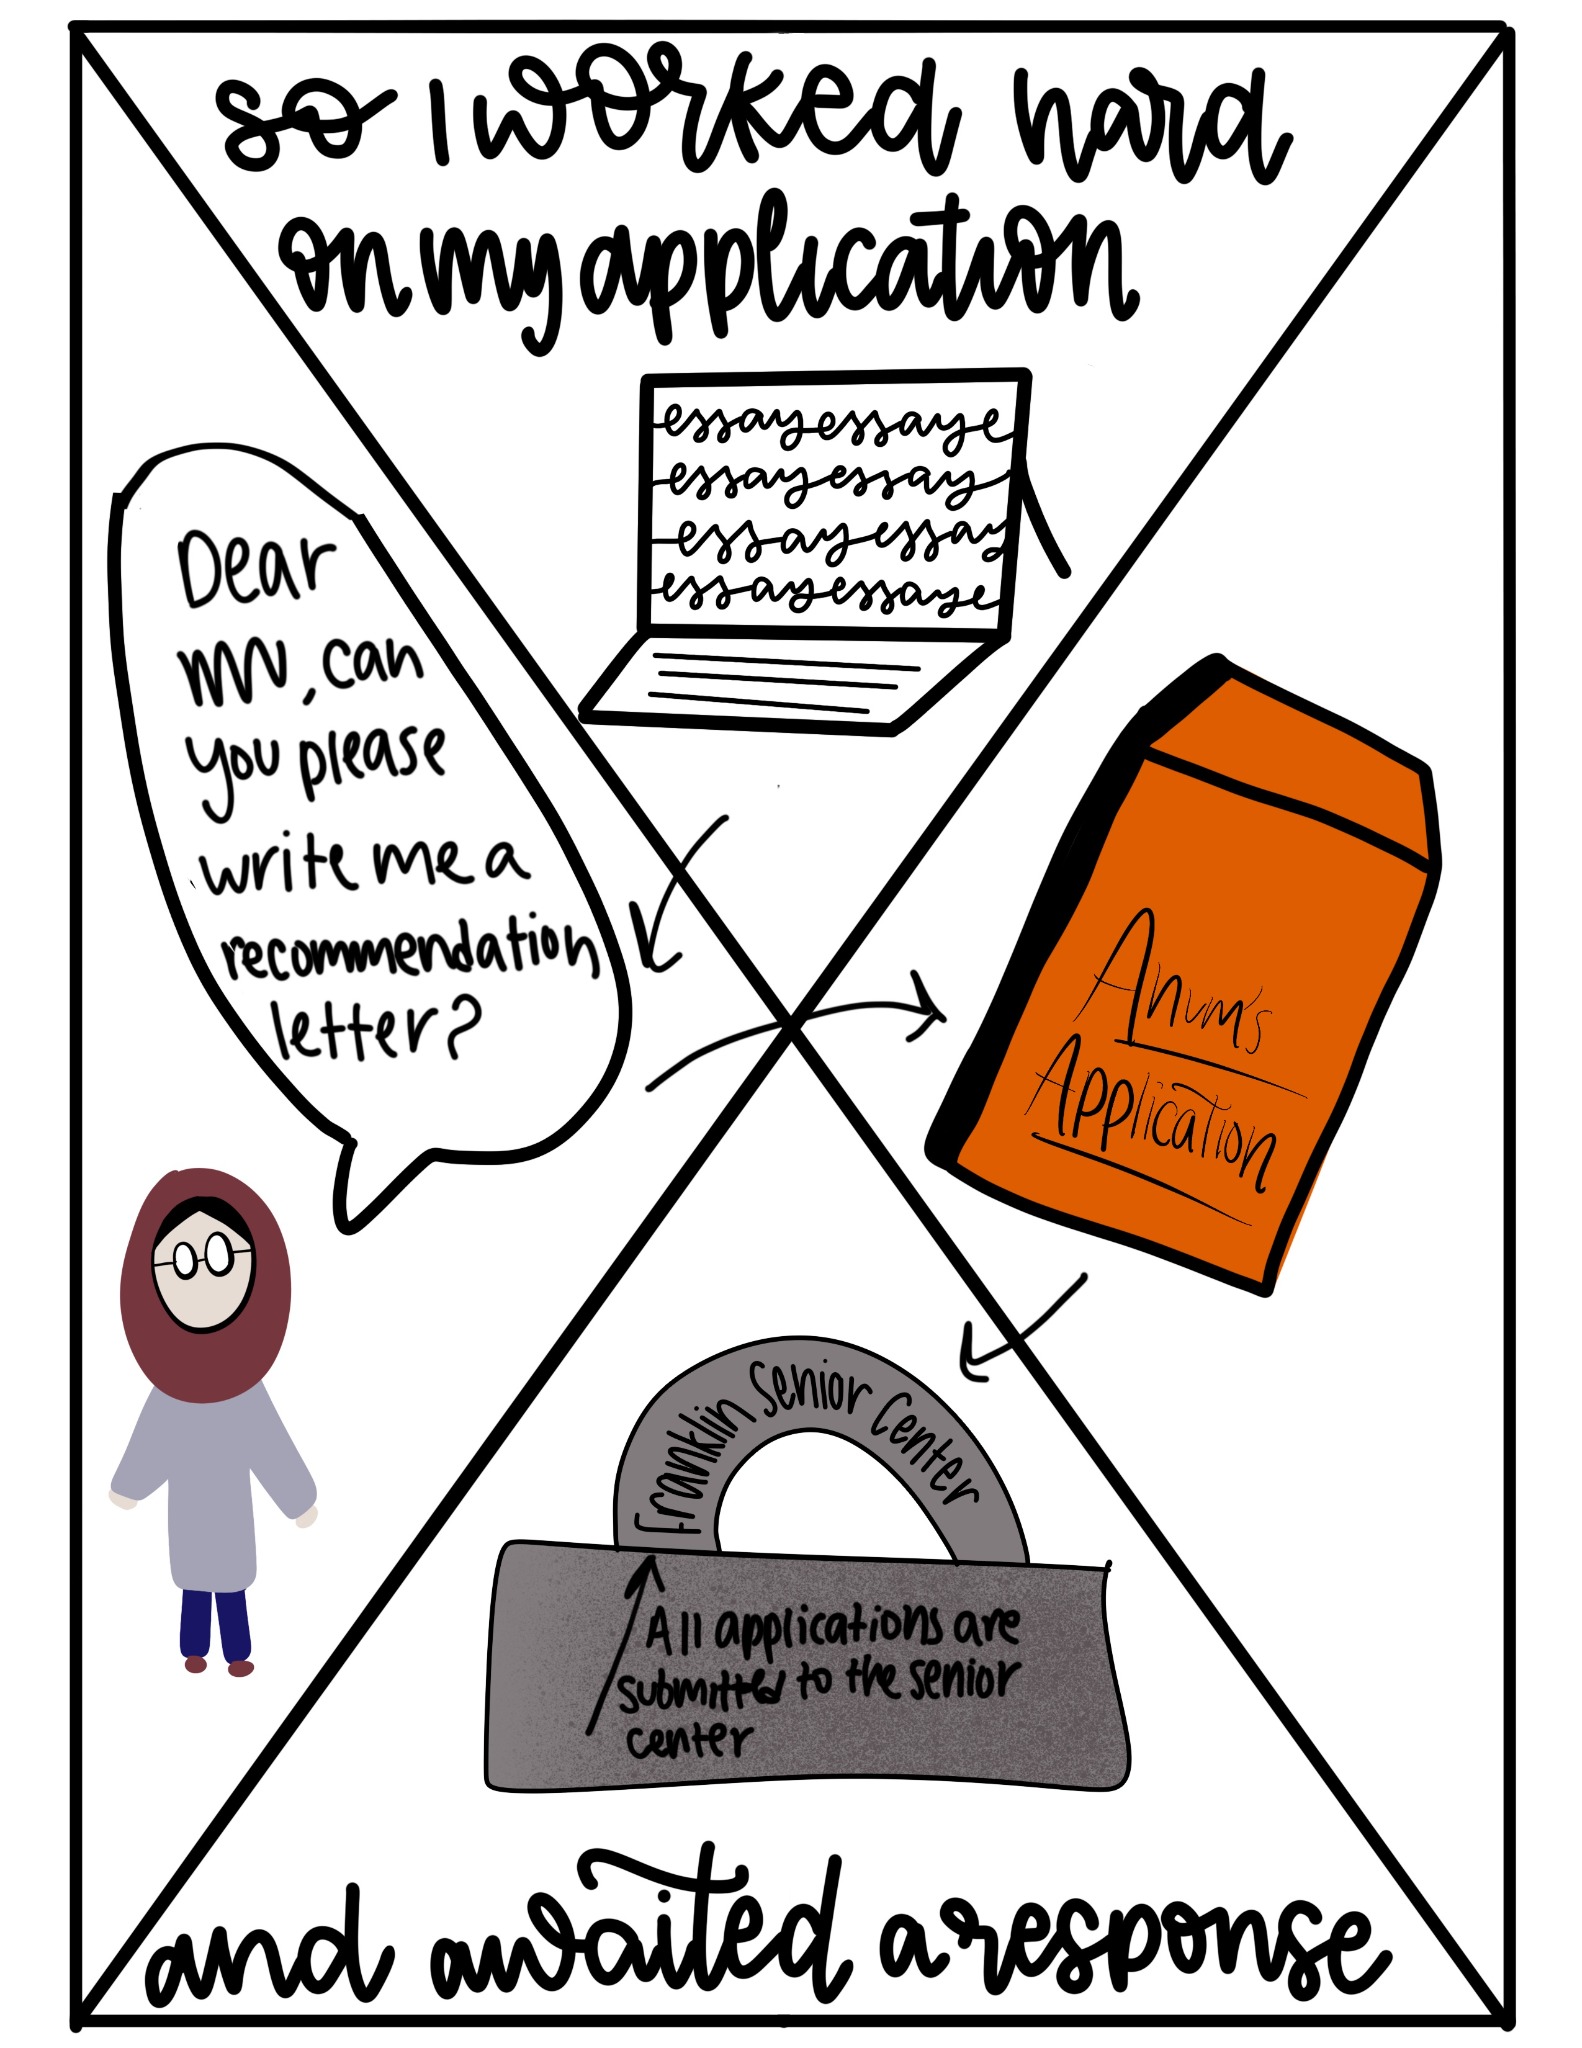 so I worked hard
on my application
essayessaye
essayessay
essayessay
essayessaye
Dear
, can
you please
write me a
recommendation
letter?
Anum's
Application
Franklin Senior Center
All applications are
submitted to the senior
center
and awaited a response